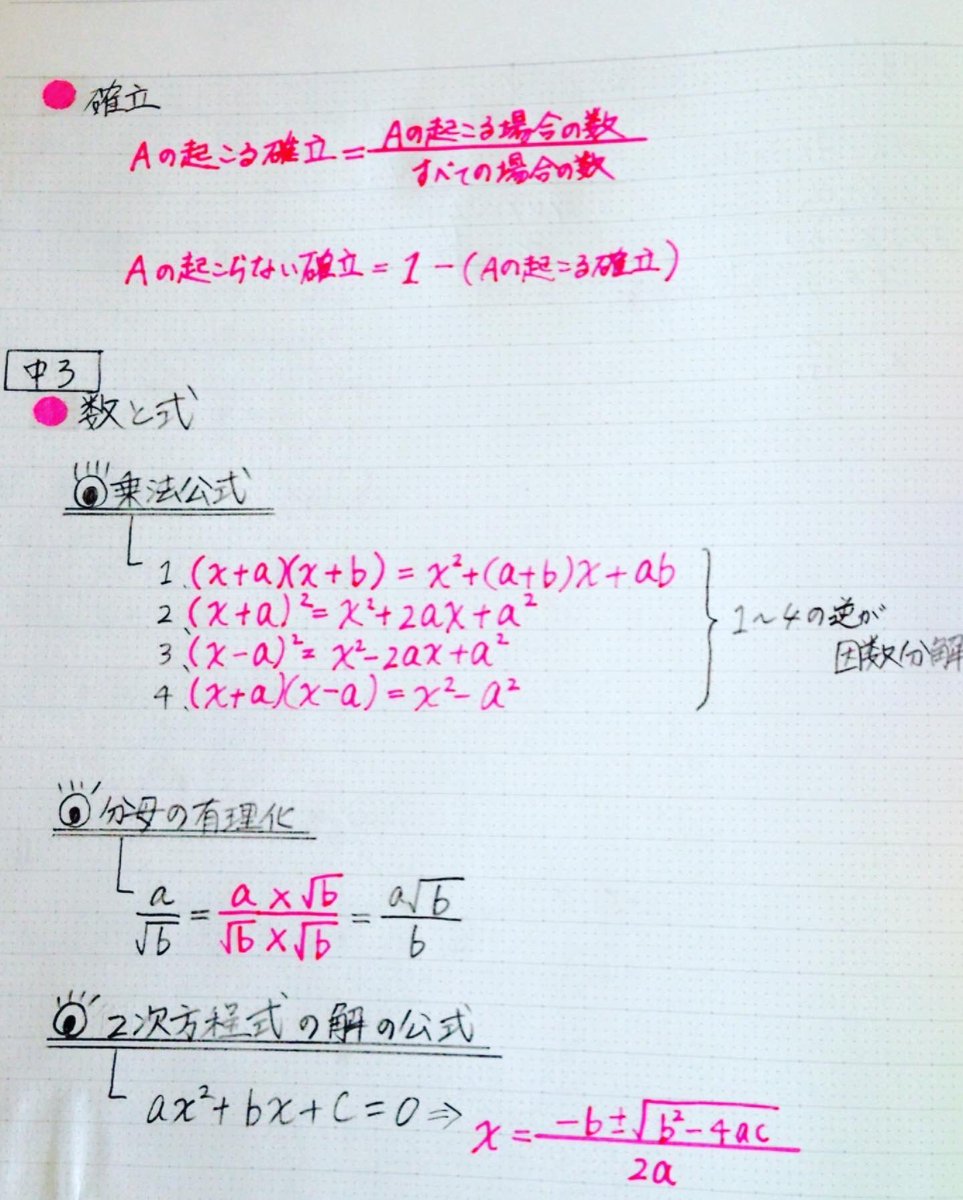 確立
Aの起こる確立 = Aの起こる場合の数 / すべての場合の数
Aの起こらない確立 = 1 - (Aの起こる確立)
中3
数と式
乗法公式
1、(x+a)(x+b) = x²+(a+b)x+ab
2、(x+a)² = x²+2ax+a²
3、(x-a)² = x²-2ax+a²
4、(x+a)(x-a) = x²-a²
1~4の逆が
因数分解
分母の有理化
a/√b = a×√b/√b×√b = a√b/b
2次方程式の解の公式
ax²+bx+c=0 ⇒ x = -b±√b²-4ac / 2a